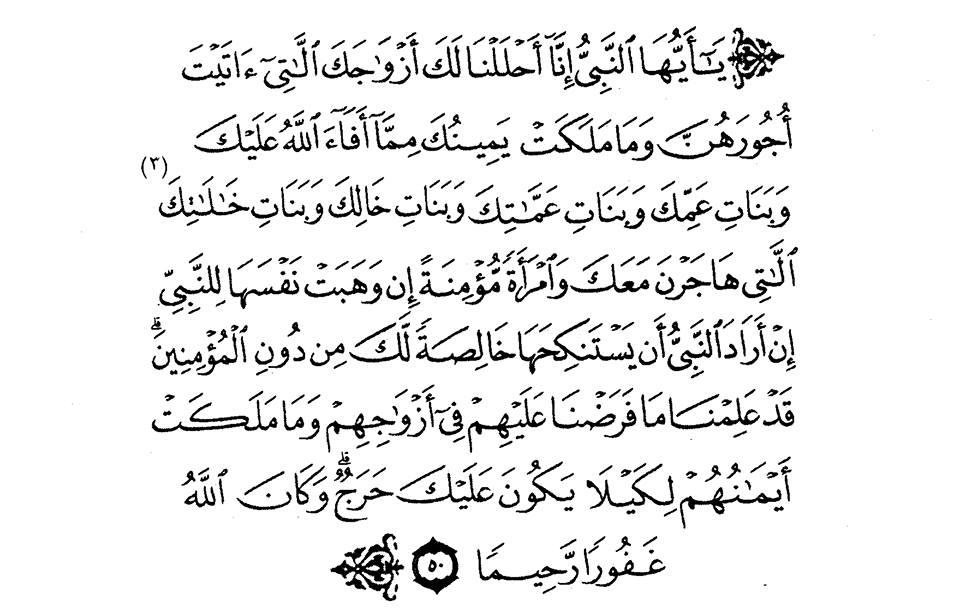 يَٰٓأَيُّهَا ٱلنَّبِىُّ إِنَّآ أَحْلَلْنَا لَكَ أَزْوَٰجَكَ ٱلَّٰتِىٓ ءَاتَيْتَ
أُجُورَهُنَّ وَمَا مَلَكَتْ يَمِينُكَ مِمَّآ أَفَآءَ ٱللَّهُ عَلَيْكَ
(٣)
وَبَنَاتِ عَمِّكَ وَبَنَاتِ عَمَّٰتِكَ وَبَنَاتِ خَالِكَ وَبَنَاتِ خَٰلَٰتِكَ
ٱلَّٰتِى هَاجَرْنَ مَعَكَ وَٱمْرَأَةً مُّؤْمِنَةً إِن وَهَبَتْ نَفْسَهَا لِلنَّبِىِّ
إِنْ أَرَادَ ٱلنَّبِىُّ أَن يَسْتَنكِحَهَا خَالِصَةً لَّكَ مِن دُونِ ٱلْمُؤْمِنِينَ ۗ
قَدْ عَلِمْنَا مَا فَرَضْنَا عَلَيْهِمْ فِىٓ أَزْوَٰجِهِمْ وَمَا مَلَكَتْ
أَيْمَٰنُهُمْ لِكَيْلَا يَكُونَ عَلَيْكَ حَرَجٌ ۗ وَكَانَ ٱللَّهُ
غَفُورًا رَّحِيمًا ٥٠